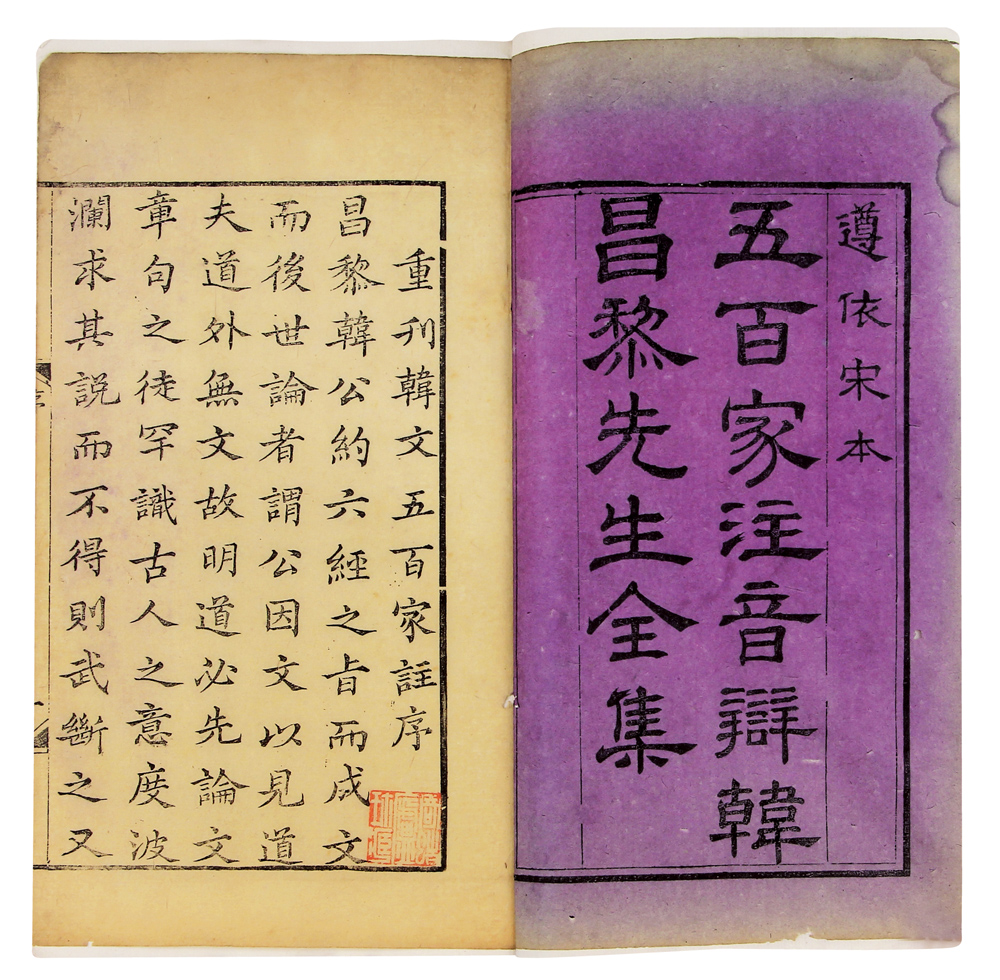 遵依宋本
五百家注音辯韓
昌黎先生全集
重刊韓文五百家註序
昌黎韓公約六經之旨而成文
而後世論者謂公因文以見道
夫道外無文故明道必先論文
章句之徒罕識古人之意度波
瀾求其説而不得則武斷之又